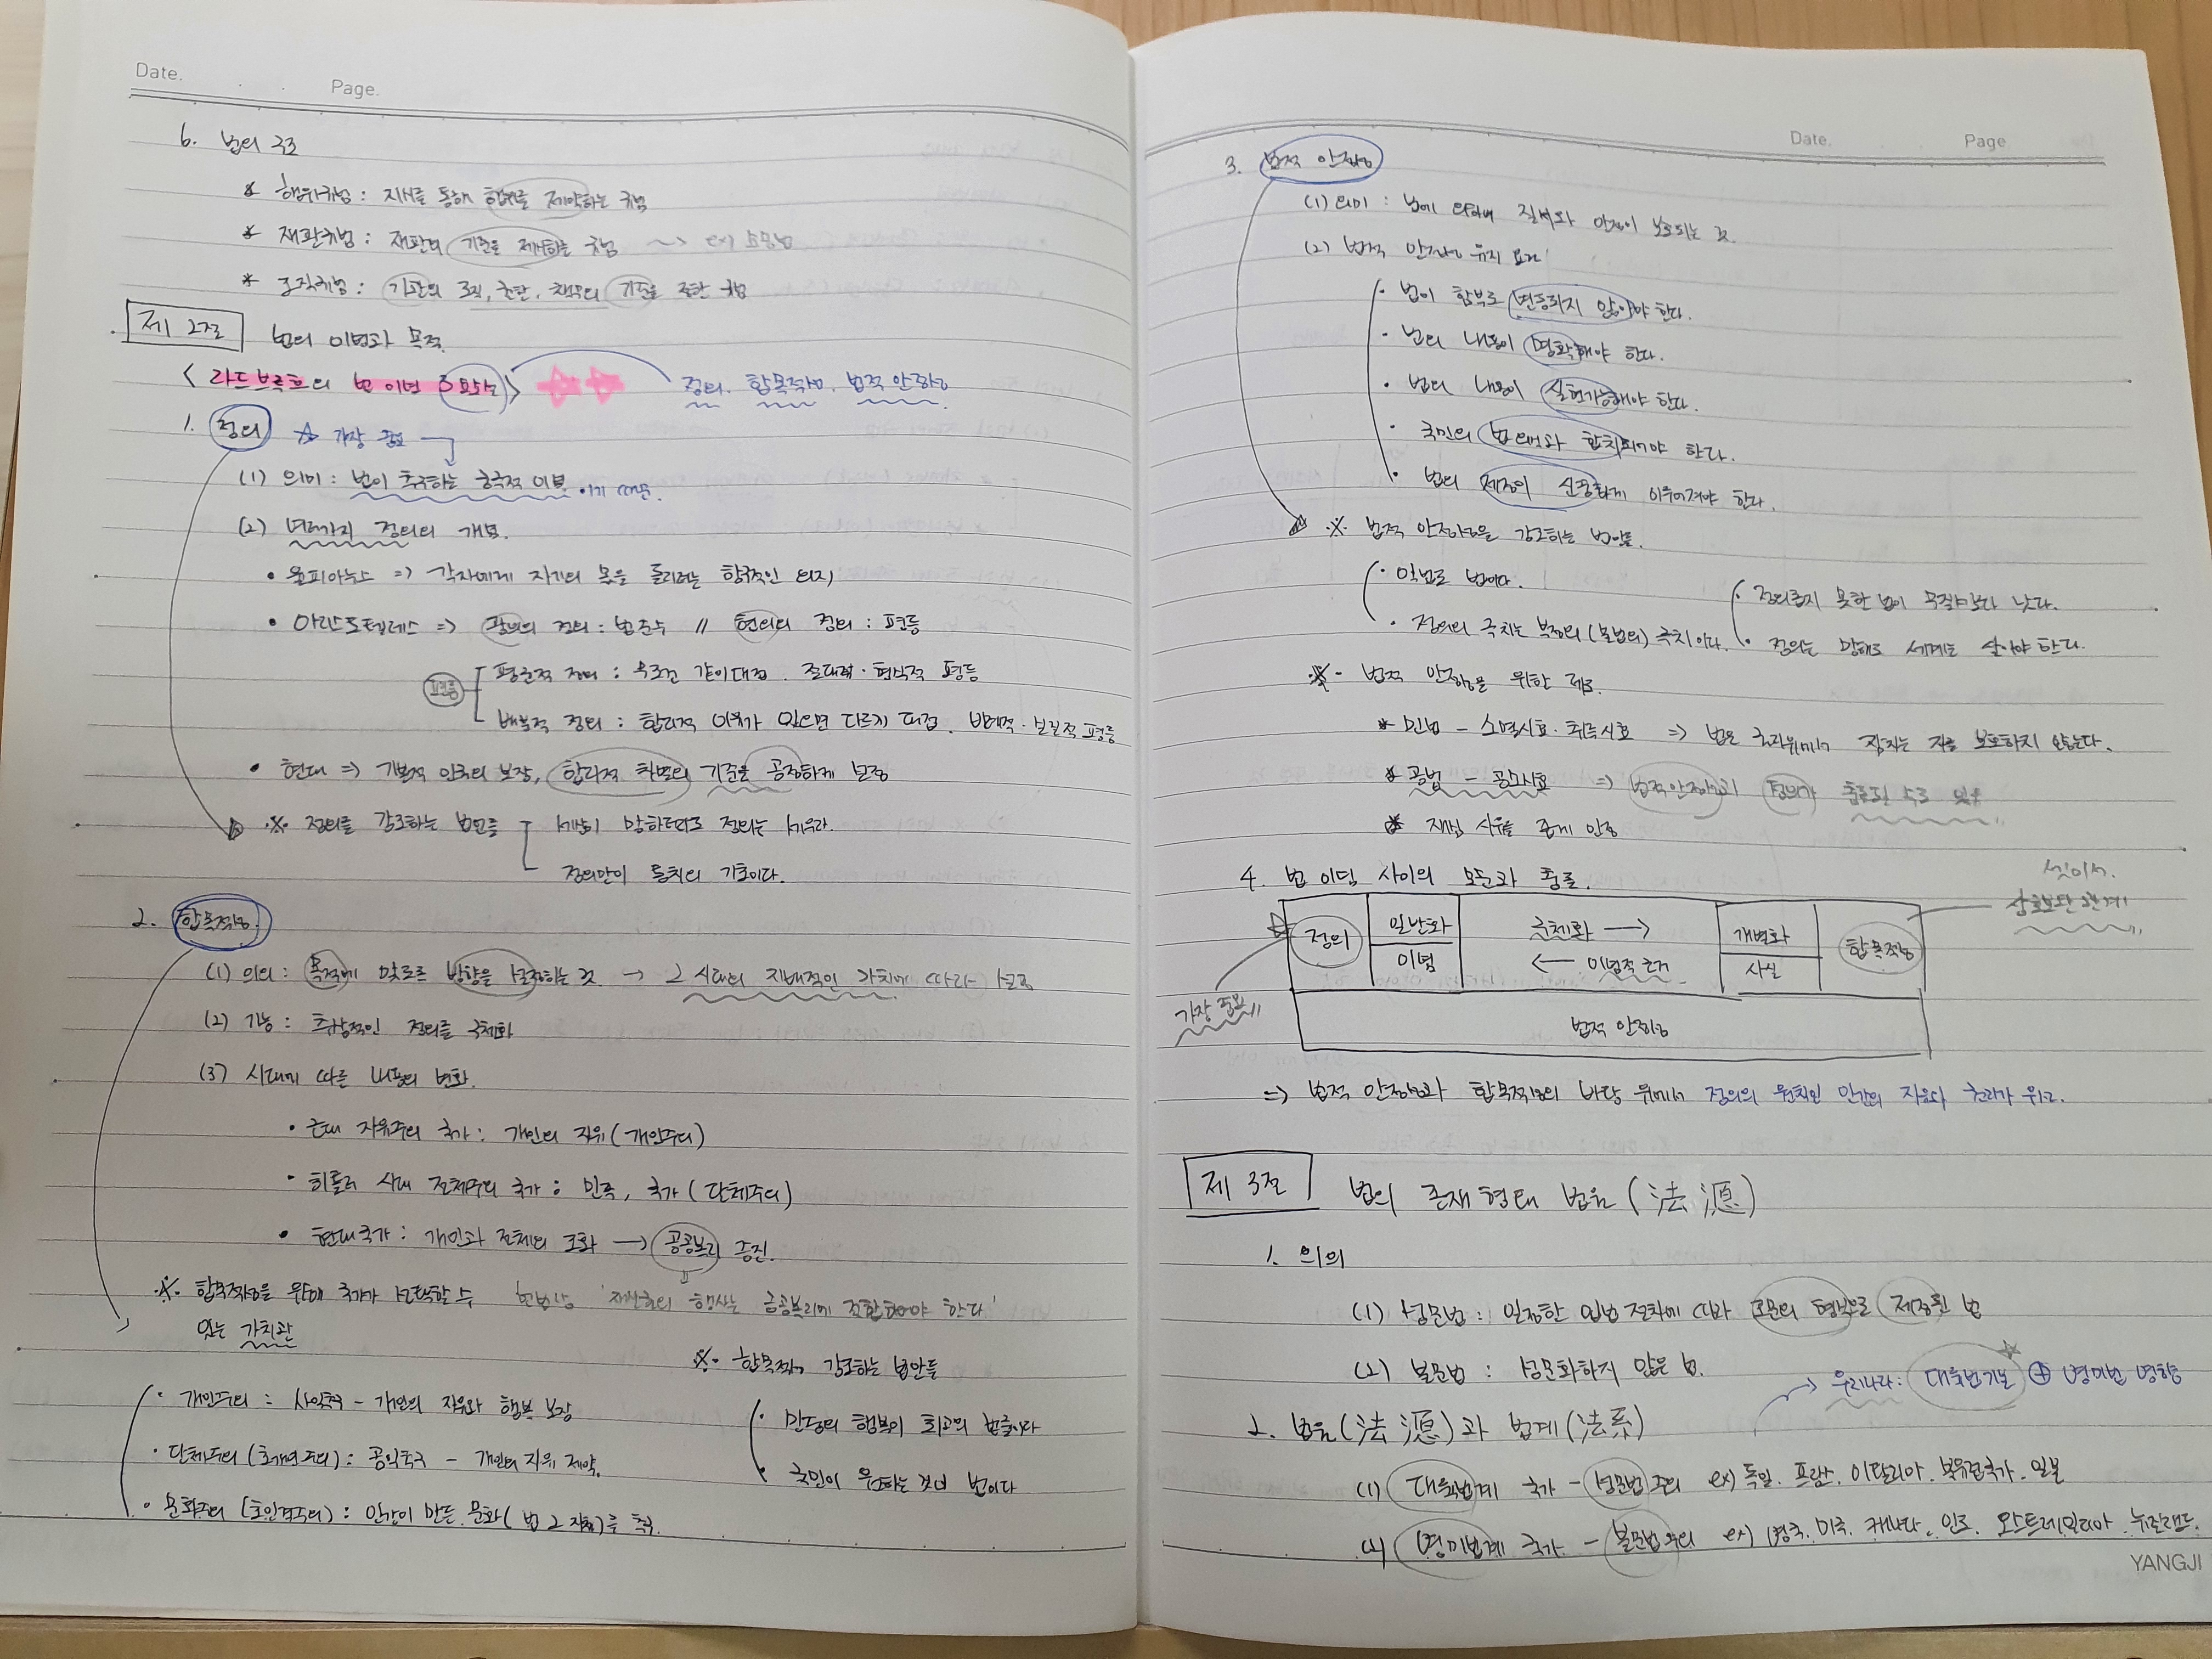 Date. Page.
6. 법의 구조
* 행위규범 : 지시를 통해 행위를 제약하는 규범
* 재판규범 : 재판의 기준을 제시하는 규범 ~> ex) 소송법
* 조직규범 : 기관의 조직, 권한, 책무의 기준을 정한 규범
제 2절 법의 이념과 목적
< 라드브루흐의 법 이념 3요소 > ☆☆ 정의. 합목적성. 법적 안정성
1. 정의 ☆ 가장 중요
(1) 의미 : 법이 추구하는 궁극적 이념. 이기 때문.
(2) 여러가지 정의의 개념.
• 울피아누스 => 각자에게 자기의 몫을 돌리려는 항구적인 의지
• 아리스토텔레스 => 광의의 정의 : 법준수 // 협의의 정의 : 평등
평등
평균적 정의 : 무조건 같이 대접. 절대적·형식적 평등
배분적 정의 : 합리적 이유가 있으면 다르게 대접. 비례적·실질적 평등
• 현대 => 기본적 인권의 보장, 합리적 차별의 기준을 공정하게 설정
※ 정의를 강조하는 법언들
세상이 망하더라도 정의는 세우라.
정의만이 통치의 기초이다.
2. 합목적성
(1) 의의 : 목적에 맞도록 방향을 설정하는 것 → 그 시대의 지배적인 가치에 따라 설정
(2) 기능 : 추상적인 정의를 구체화
(3) 시대에 따른 내용의 변화.
• 근대 자유주의 국가 : 개인의 자유 (개인주의)
• 히틀러 시대 전체주의 국가 : 민족, 국가 (단체주의)
• 현대국가 : 개인과 전체의 조화 → 공공복리 증진.
※ 합목적성을 위해 국가가 선택할 수 헌법상 '재산권의 행사는 공공복리에 적합하여야 한다'
있는 가치관
※ 합목적성 강조하는 법언들
• 개인주의 : 사익추구 - 개인의 자유와 행복 보장
• 만민의 행복이 최고의 법률이다
• 단체주의 (초개인주의) : 공익추구 - 개인의 자유 제약.
• 국민이 원하는 것이 법이다
• 문화주의 (초인격주의) : 인간이 만든 문화 (법 그 자체)를 추구.
Date. Page
3. 법적 안정성
(1) 의미 : 법에 의하여 질서와 안정이 보호되는 것.
(2) 법적 안정성 유지 요건
• 법이 함부로 변동되지 않아야 한다.
• 법의 내용이 명확해야 한다.
• 법의 내용이 실현가능해야 한다.
• 국민의 법의식과 합치되어야 한다.
• 법의 제정이 신중하게 이루어져야 한다.
※ 법적 안정성을 강조하는 법언들.
• 악법도 법이다.
• 정의롭지 못한 법이 무질서보다 낫다.
• 정의의 극치는 부정의 (불법의) 극치이다.
• 정의는 망해도 세계는 살아야 한다.
※ 법적 안정성을 위한 제도.
* 민법 - 소멸시효·취득시효 => 법은 권리위에서 잠자는 자를 보호하지 않는다.
* 공법 - 공소시효 => 법적안정성과 정의가 충돌될 수도 있음
* 재심 사유를 좁게 인정
4. 법 이념 사이의 모순과 충돌.
셋이서.
상호보완 관계
정의 일반화 구체화 → 개별화 합목적성
이념 ← 이념적 근거 사실
가장 중요
법적 안정성
=> 법적 안정성과 합목적성의 바탕 위에서 정의의 원칙인 인간의 자유와 권리가 위로.
제 3절 법의 존재형태 법원 (法源)
1. 의의
(1) 성문법 : 일정한 입법 절차에 따라 조문의 형식으로 제정된 법
(2) 불문법 : 성문화하지 않은 법.
우리나라 : 대륙법기본 ⊕ 영미법 영향
2. 법원 (法源)과 법계 (法系)
(1) 대륙법계 국가 - 성문법주의 ex) 독일. 프랑스. 이탈리아. 북유럽국가. 일본
(2) 영미법계 국가 - 불문법주의 ex) 영국. 미국. 캐나다. 인도. 오스트레일리아. 뉴질랜드.
YANGJI